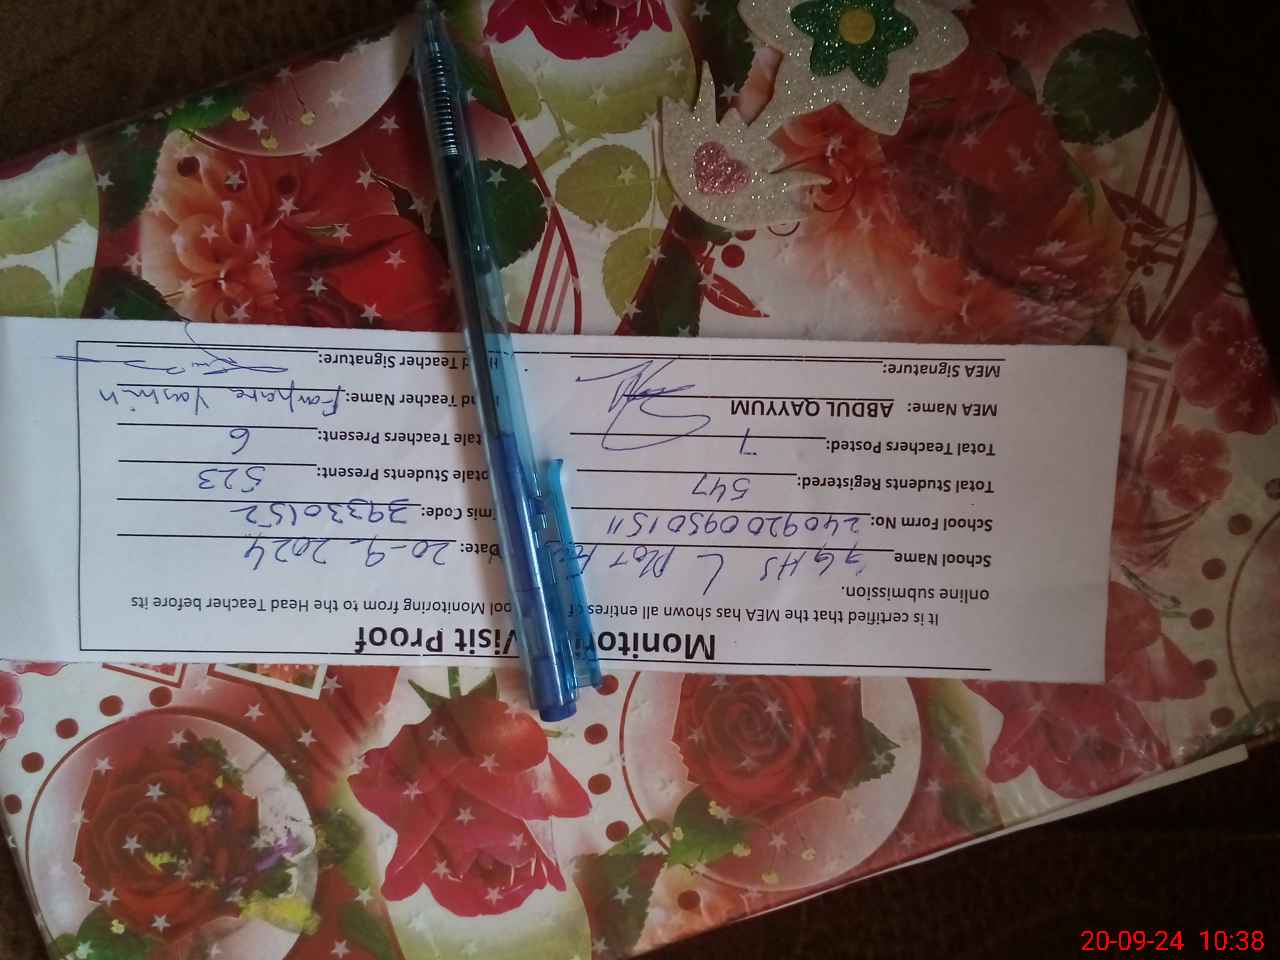 Monitori Visit Proof
It is certified that the MEA has shown all entires of ool Monitoring from to the Head Teacher before its
online submission.
School Name GGHS L PLOT Date: 20-9-2024
School Form No: 24092009501511 mis Code: 39330152
Total Students Registered: 547 otale Students Present: 523
Total Teachers Posted: 7 tale Teachers Present: 6
MEA Name: ABDUL QAYYUM ad Teacher Name: Farzana Yasmin
MEA Signature: H d Teacher Signature:
20-09-24 10:38